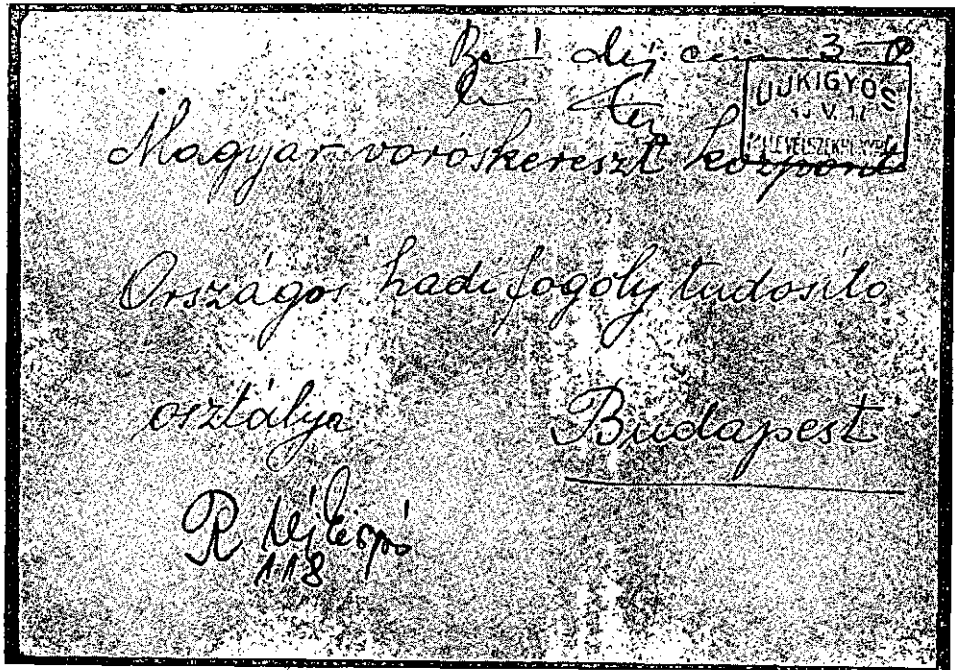 díj 3
UJKIGYÓS
Magyar vöröskereszt központ
Országos hadi fogoly tudosito
osztálya Budapest
R
118